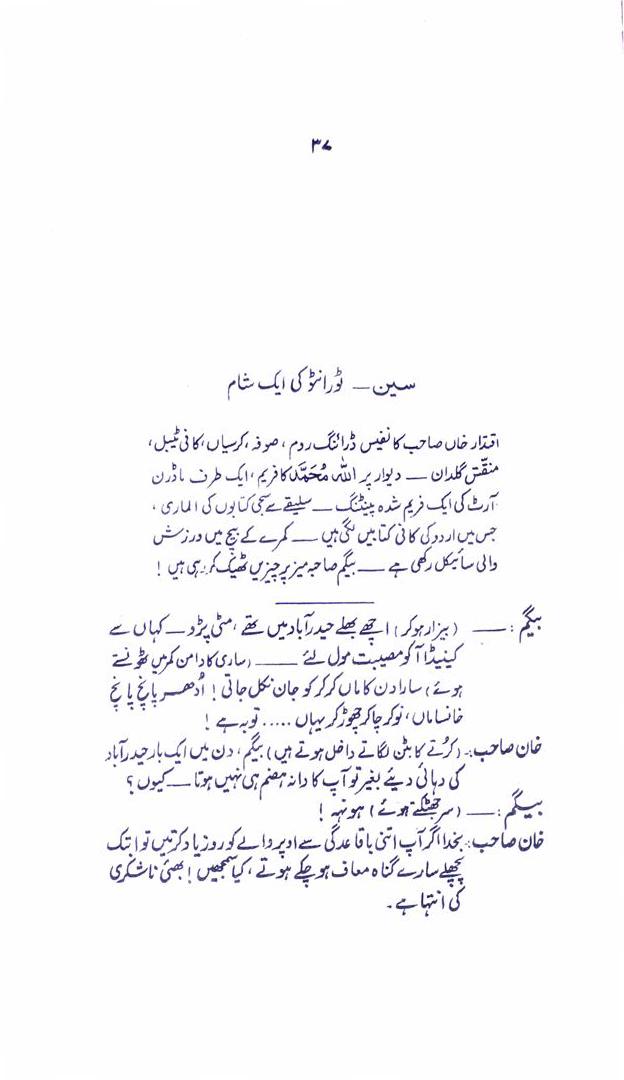 ۳۷
سین — ٹورانٹو کی ایک شام
اقتدار خاں صاحب کا نفیس ڈرائنگ روم، صوفہ، کرسیاں، کافی ٹیبل،
منقّش گلدان — دیوار پر اللہ مُحَمَّد کا فریم، ایک طرف ماڈرن
آرٹ کی ایک فریم شدہ پینٹنگ — سلیقے سے سجی کتابوں کی الماری،
جس میں اردو کی کافی کتابیں لگی ہیں — کمرے کے بیچ میں ورزش
والی سائیکل رکھی ہے — بیگم صاحبہ میز پر چیزیں ٹھیک کر رہی ہیں!
بیگم: — (بیزار ہو کر) اچھے بھلے حیدرآباد میں تھے، مٹی پڑو — کہاں سے
کینیڈا آ کو مصیبت مول لئے — (ساری کا دامن کمر میں ٹھونستے
ہوئے) سارا دن کاماں کر کر کو جان نکل جاتی! اُدھر پانچ پانچ
خانساماں، نوکر چاکر چھوڑ کر یہاں ..... توبہ ہے!
خان صاحب:۔ (کُرتے کا بٹن لگاتے داخل ہوتے ہیں) بیگم، دن میں ایک بار حیدرآباد
کی دہائی دیئے بغیر تو آپ کا دانہ ہضم ہی نہیں ہوتا — کیوں؟
بیگم: — (سر جھٹکتے ہوئے) ہونہہ!
خان صاحب:۔ بخدا اگر آپ اتنی باقاعدگی سے اوپر والے کو روز یاد کرتیں تو اب تک
پچھلے سارے گناہ معاف ہو چکے ہوتے، کیا سمجھیں! بھئی ناشکری
کی انتہا ہے۔